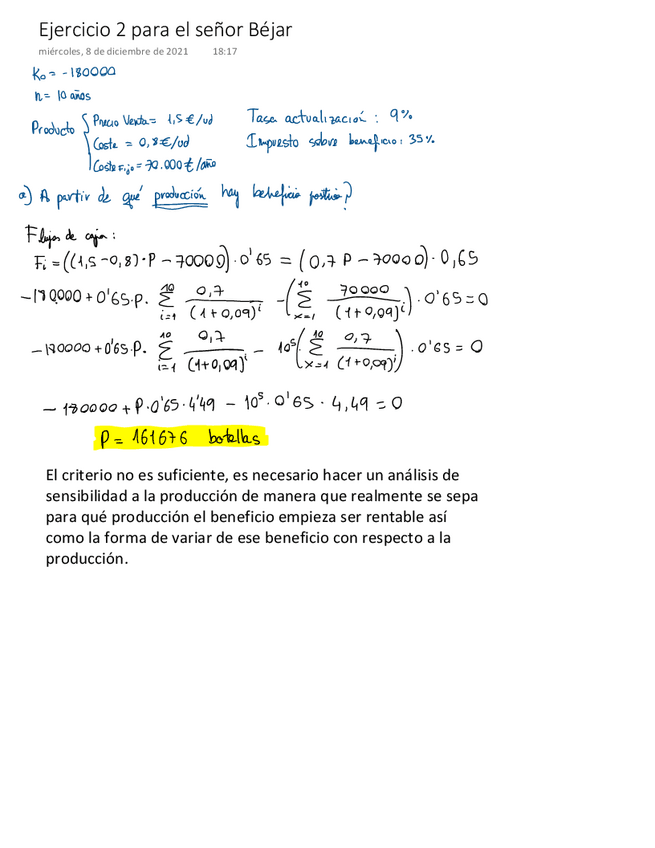 Ejercicio 2 para el señor Béjar
miércoles, 8 de diciembre de 2021 18:17
K₀ = -180000
n = 10 años
Producto { Precio Venta = 1,5 €/ud
Coste = 0,8 €/ud
Coste Fijo = 70.000 €/año
Tasa actualización : 9%
Impuesto sobre beneficio: 35%
a) A partir de qué producción hay beneficio positivo?
Flujos de caja:
Fi = ((1,5-0,8)·P - 70000)·0'65 = (0,7P - 70000)·0,65
-180000 + 0'65·P· ∑_{i=1}^{10} 0,7/(1+0,09)^i - (∑_{x=1}^{10} 70000/(1+0,09)^i)·0'65 = 0
-180000 + 0'65·P· ∑_{i=1}^{10} 0,7/(1+0,09)^i - 10⁵(∑_{x=1}^{10} 0,7/(1+0,09)^i)·0'65 = 0
- 180000 + P·0'65·4'49 - 10⁵·0'65·4,49 = 0
P = 161676 botellas
El criterio no es suficiente, es necesario hacer un análisis de
sensibilidad a la producción de manera que realmente se sepa
para qué producción el beneficio empieza ser rentable así
como la forma de variar de ese beneficio con respecto a la
producción.